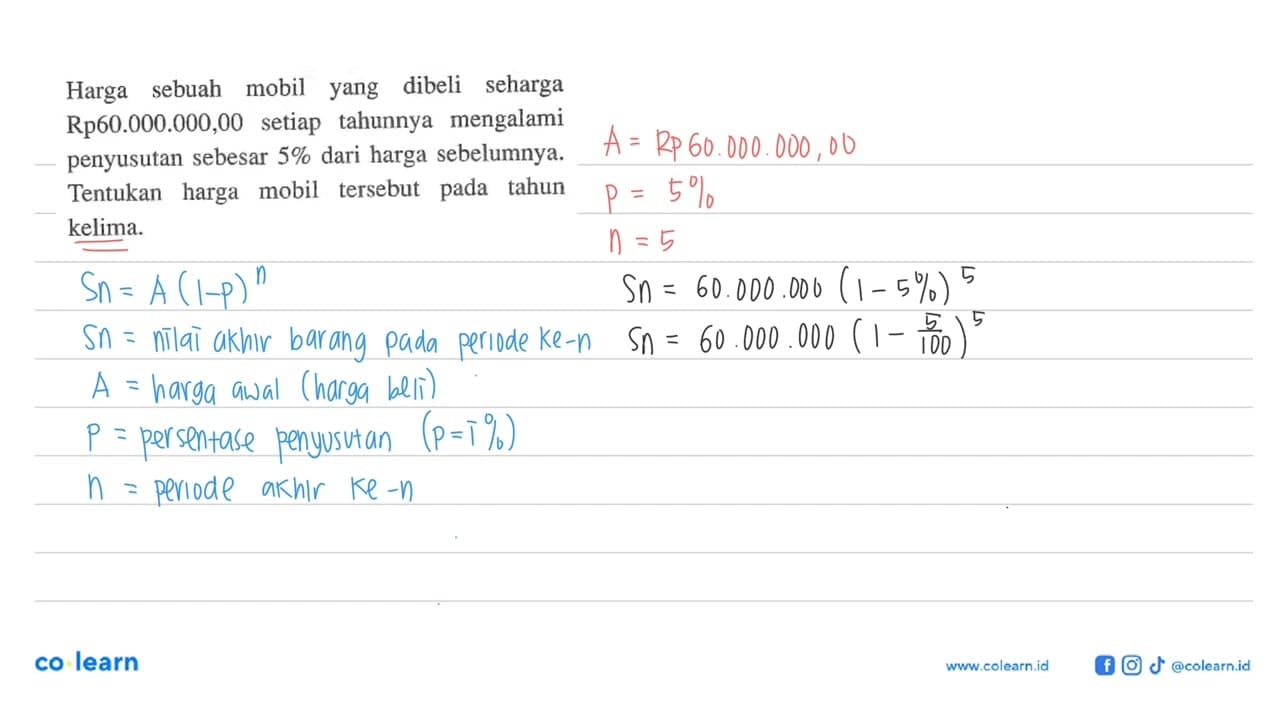 Harga sebuah mobil yang dibeli seharga
Rp60.000.000,00 setiap tahunnya mengalami
penyusutan sebesar 5% dari harga sebelumnya.
Tentukan harga mobil tersebut pada tahun
kelima.
A = Rp 60.000.000,00
P = 5%
n = 5
Sn = A (1-p)^n
Sn = nilai akhir barang pada periode ke-n
A = harga awal (harga beli)
P = persentase penyusutan (p=i%)
n = periode akhir ke-n
Sn = 60.000.000 (1 - 5%)^5
Sn = 60.000.000 (1 - 5/100)^5
co learn
www.colearn.id
@colearn.id